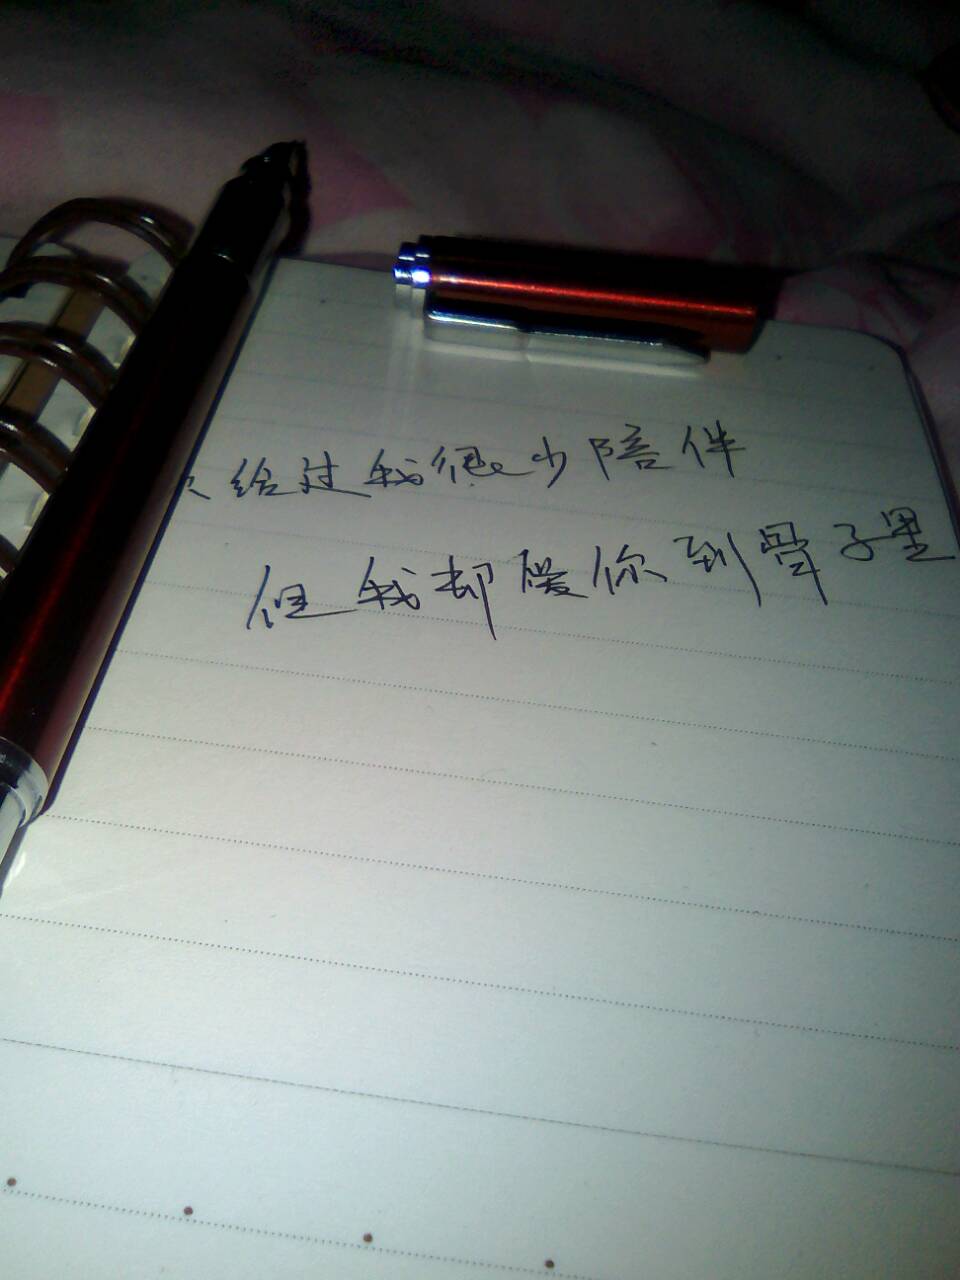 给过我很少陪伴
但我却爱你到骨子里